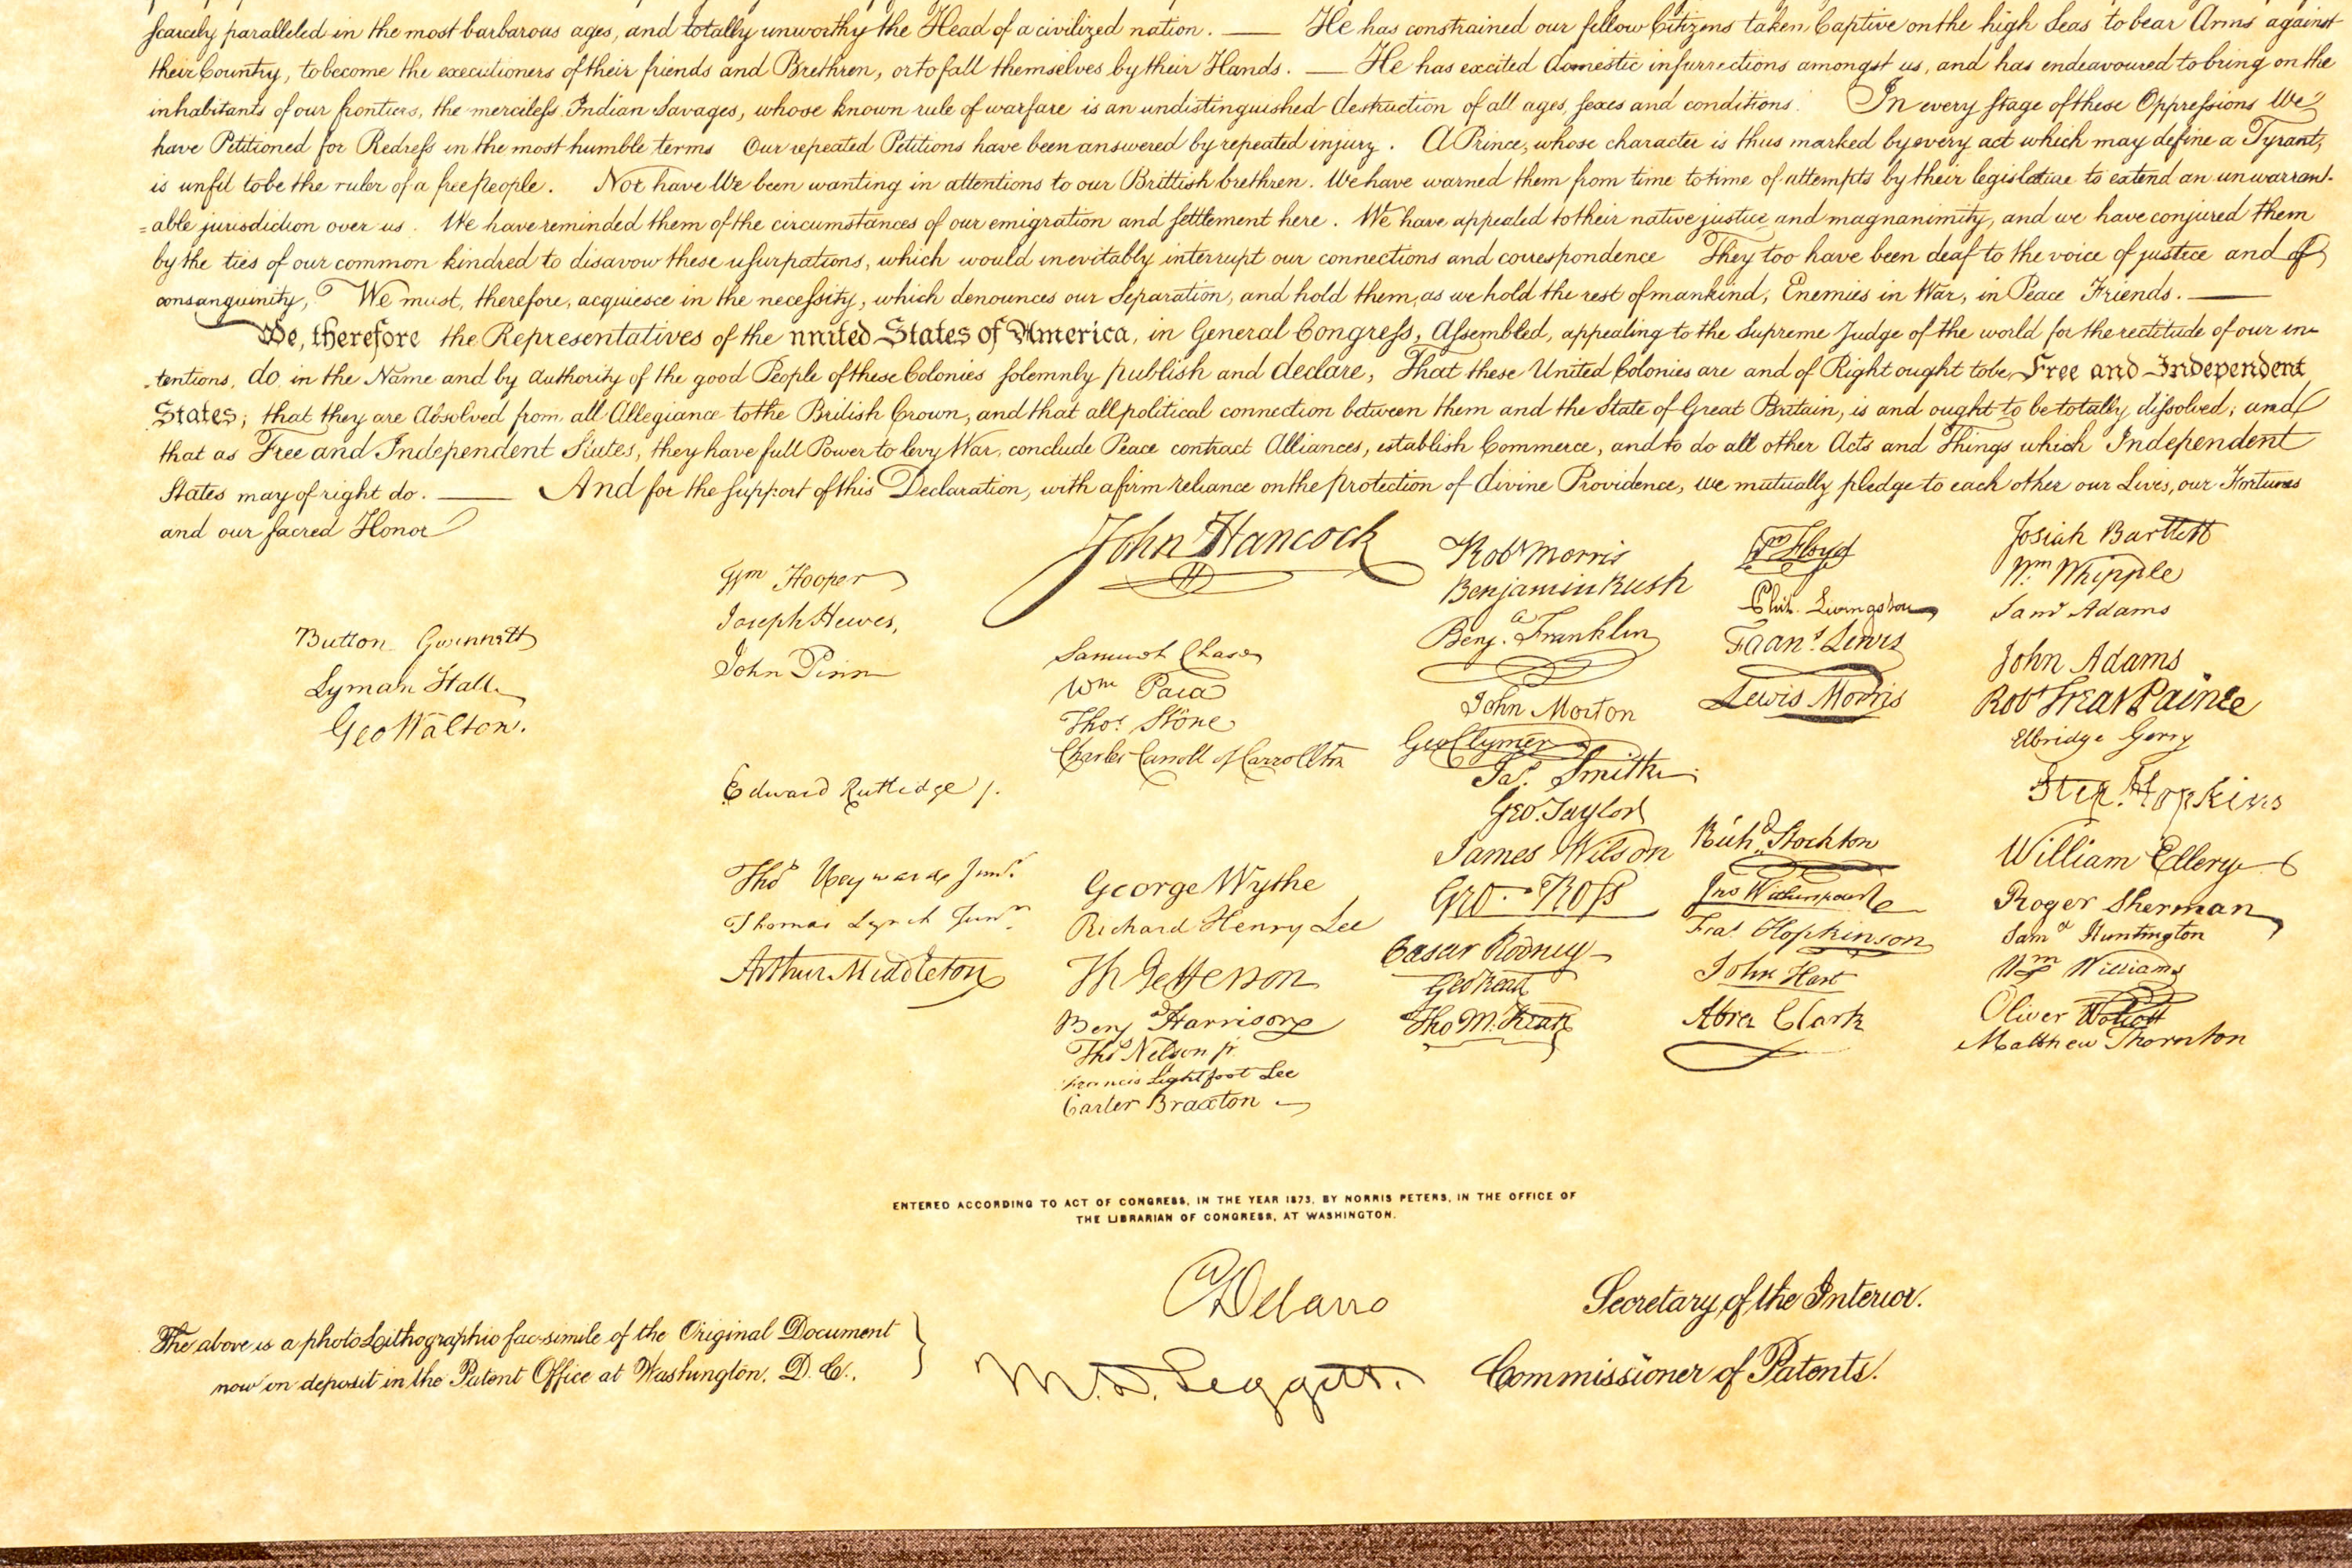 scarcely paralleled in the most barbarous ages, and totally unworthy the Head of a civilized nation. — He has constrained our fellow Citizens taken Captive on the high Seas to bear Arms against
their Country, to become the executioners of their friends and Brethren, or to fall themselves by their Hands. — He has excited domestic insurrections amongst us, and has endeavoured to bring on the
inhabitants of our frontiers, the merciless Indian Savages, whose known rule of warfare is an undistinguished destruction of all ages, sexes and conditions. In every stage of these Oppressions We
have Petitioned for Redress in the most humble terms Our repeated Petitions have been answered by repeated injury. A Prince, whose character is thus marked by every act which may define a Tyrant,
is unfit to be the ruler of a free people. Nor have We been wanting in attentions to our Brittish brethren. We have warned them from time to time of attempts by their legislature to extend an unwarrant-
=able jurisdiction over us. We have reminded them of the circumstances of our emigration and settlement here. We have appealed to their native justice and magnanimity, and we have conjured them
by the ties of our common kindred to disavow these usurpations, which would inevitably interrupt our connections and correspondence They too have been deaf to the voice of justice and of
consanguinity, We must, therefore, acquiesce in the necessity, which denounces our Separation, and hold them, as we hold the rest of mankind, Enemies in War, in Peace Friends. —
We, therefore the Representatives of the united States of America, in General Congress, Assembled, appealing to the Supreme Judge of the world for the rectitude of our in-
tentions, do, in the Name and by authority of the good People of these Colonies solemnly publish and declare, That these United Colonies are and of Right ought to be Free and Independent
States; that they are Absolved from all Allegiance to the British Crown, and that all political connection between them and the State of Great Britain, is and ought to be totally dissolved; and
that as Free and Independent States, they have full Power to levy War, conclude Peace contract Alliances, establish Commerce, and to do all other Acts and Things which Independent
States may of right do. — And for the support of this Declaration, with a firm reliance on the protection of divine Providence, we mutually pledge to each other our Lives, our Fortunes
and our sacred Honor
Button Gwinnett
Lyman Hall
Geo Walton.
Wm Hooper
Joseph Hewes,
John Penn
Edward Rutledge /.
Thos Heyward Junr.
Thomas Lynch Junr.
Arthur Middleton
John Hancock
Samuel Chase
Wm Paca
Thos. Stone
Charles Carroll of Carrollton
George Wythe
Richard Henry Lee
Th Jefferson
Benj Harrison
Thos Nelson jr.
Francis Lightfoot Lee
Carter Braxton
Robt Morris
Benjamin Rush
Benja. Franklin
John Morton
Geo Clymer
Jas. Smith
Geo. Taylor
James Wilson
Geo. Ross
Caesar Rodney
Geo Read
Tho M:Kean
Wm Floyd
Phil. Livingston
Frans. Lewis
Lewis Morris
Richd. Stockton
Jno Witherspoon
Fras. Hopkinson
John Hart
Abra Clark
Josiah Bartlett
Wm. Whipple
Saml Adams
John Adams
Robt Treat Paine
Elbridge Gerry
Step. Hopkins
William Ellery
Roger Sherman
Saml Huntington
Wm Williams
Oliver Wolcott
Matthew Thornton
ENTERED ACCORDING TO ACT OF CONGRESS, IN THE YEAR 1873, BY NORRIS PETERS, IN THE OFFICE OF
THE LIBRARIAN OF CONGRESS, AT WASHINGTON.
The above is a photo Lithographic fac-simile of the Original Document
now on deposit in the Patent Office at Washington, D. C.,
C Delano Secretary of the Interior.
M. D. Leggett. Commissioner of Patents.